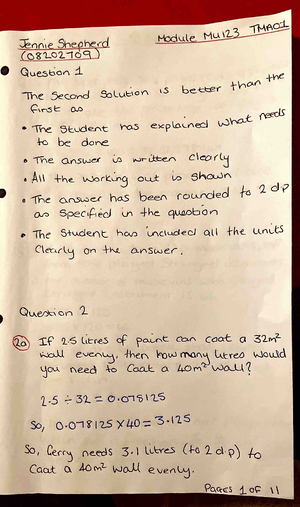 Jennie Shepherd
Module MU123 TMA01
(08202709)
Question 1
The Second Solution is better than the
first as
• The Student has explained what needs
to be done
• The answer is written clearly
• All the working out is shown
• The answer has been rounded to 2 dp
as specified in the question
• The Student has included all the units
Clearly on the answer.
Question 2
2a If 2.5 litres of paint can coat a 32m²
wall evenly, then how many litres would
you need to Coat a 40m² wall?
2.5 ÷ 32 = 0.078125
So, 0.078125 × 40 = 3.125
So, Gerry needs 3.1 litres (to 2 d.p) to
Coat a 40m² wall evenly.
Pages 1 of 11